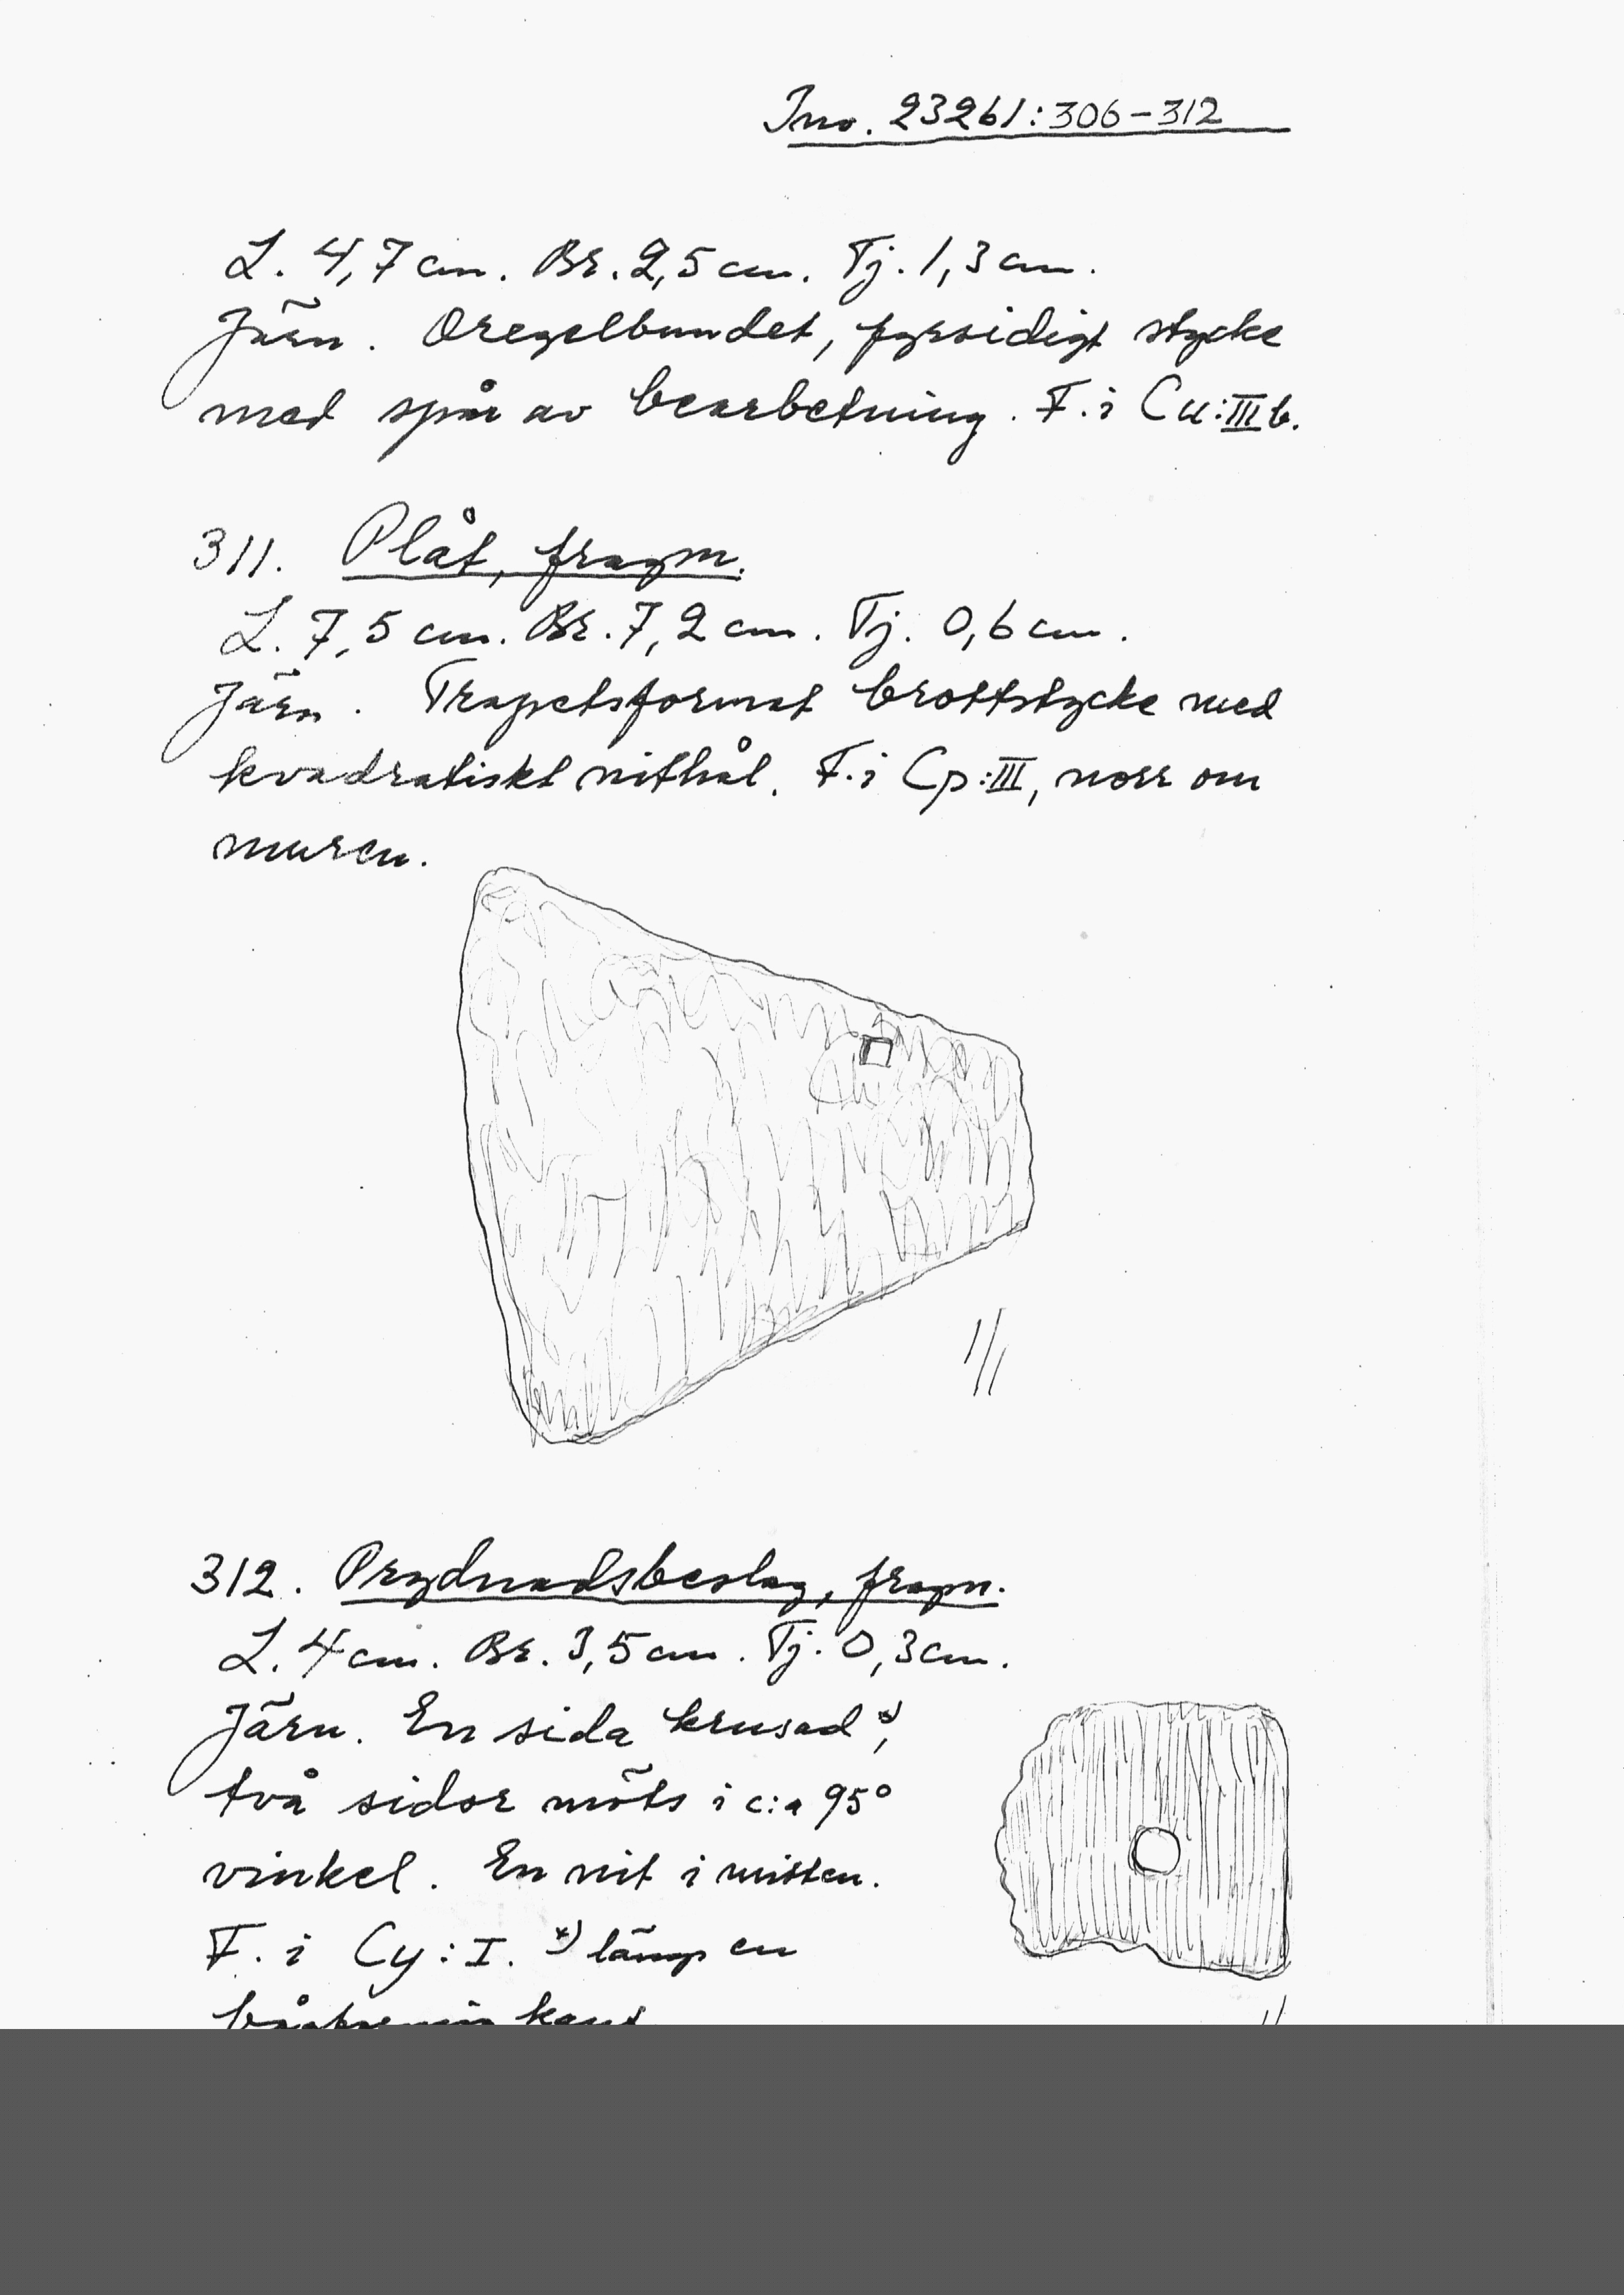 Inv. 23261:306-312
L. 4,7 cm. Br. 2,5 cm. Tj. 1,3 cm.
Järn. Oregelbundet, fyrsidigt stycke
med spår av bearbetning. F. i Cu:III b.
311. Plåt, fragm.
L. 7,5 cm. Br. 7,2 cm. Tj. 0,6 cm.
Järn. Trapetsformat brottstycke med
kvadratiskt nithål. F. i Cp:III, norr om
muren.
1/1
312. Prydnadsbeslag, fragm.
L. 4 cm. Br. 3,5 cm. Tj. 0,3 cm.
Järn. En sida krusad *),
två sidor möts i c:a 95°
vinkel. En nit i mitten.
F. i Cy:I. *) längs en
kant